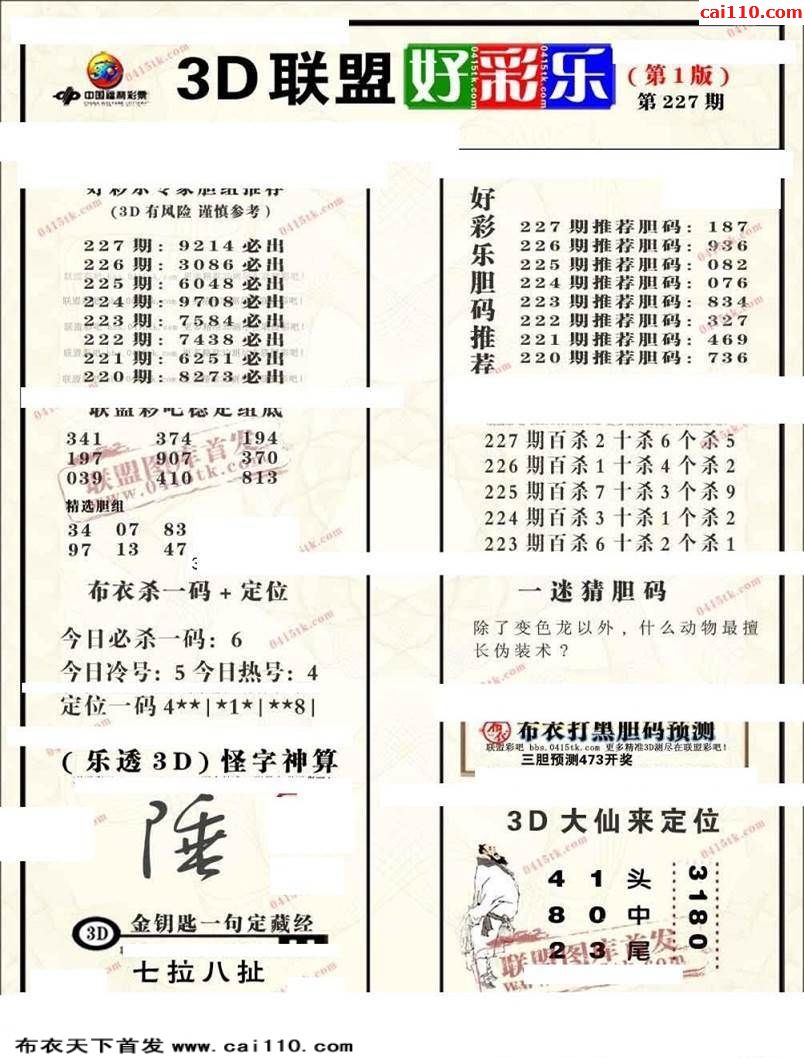 cai110.com
中国福利彩票
CHINA WELFARE LOTTERY
3D联盟好彩乐
(第1版)
第227期
好彩乐专家胆组推荐
(3D有风险 谨慎参考)
227期：9214必出
226期：3086必出
225期：6048必出
224期：9708必出
223期：7584必出
222期：7438必出
221期：6251必出
220期：8273必出
联盟彩吧稳定组底
341 374 194
197 907 370
039 410 813
联盟图库首发
www.0415tk.com
精选胆组
34 07 83
97 13 47
布衣杀一码+定位
今日必杀一码：6
今日冷号：5 今日热号：4
定位一码 4**|*1*|**8|
(乐透3D)怪字神算
3D
金钥匙一句定藏经
七拉八扯
好彩乐胆码推荐
227期推荐胆码：187
226期推荐胆码：936
225期推荐胆码：082
224期推荐胆码：076
223期推荐胆码：834
222期推荐胆码：327
221期推荐胆码：469
220期推荐胆码：736
227期百杀2十杀6个杀5
226期百杀1十杀4个杀2
225期百杀7十杀3个杀9
224期百杀3十杀1个杀2
223期百杀6十杀2个杀1
一迷猜胆码
除了变色龙以外，什么动物最擅
长伪装术？
布衣打黑胆码预测
联盟彩吧 bbs.0415tk.com 更多精准3D测尽在联盟彩吧!
三胆预测473开奖
3D大仙来定位
4 1 头
8 0 中
2 3 尾
3180
联盟图库首发
布衣天下首发 www.cai110.com